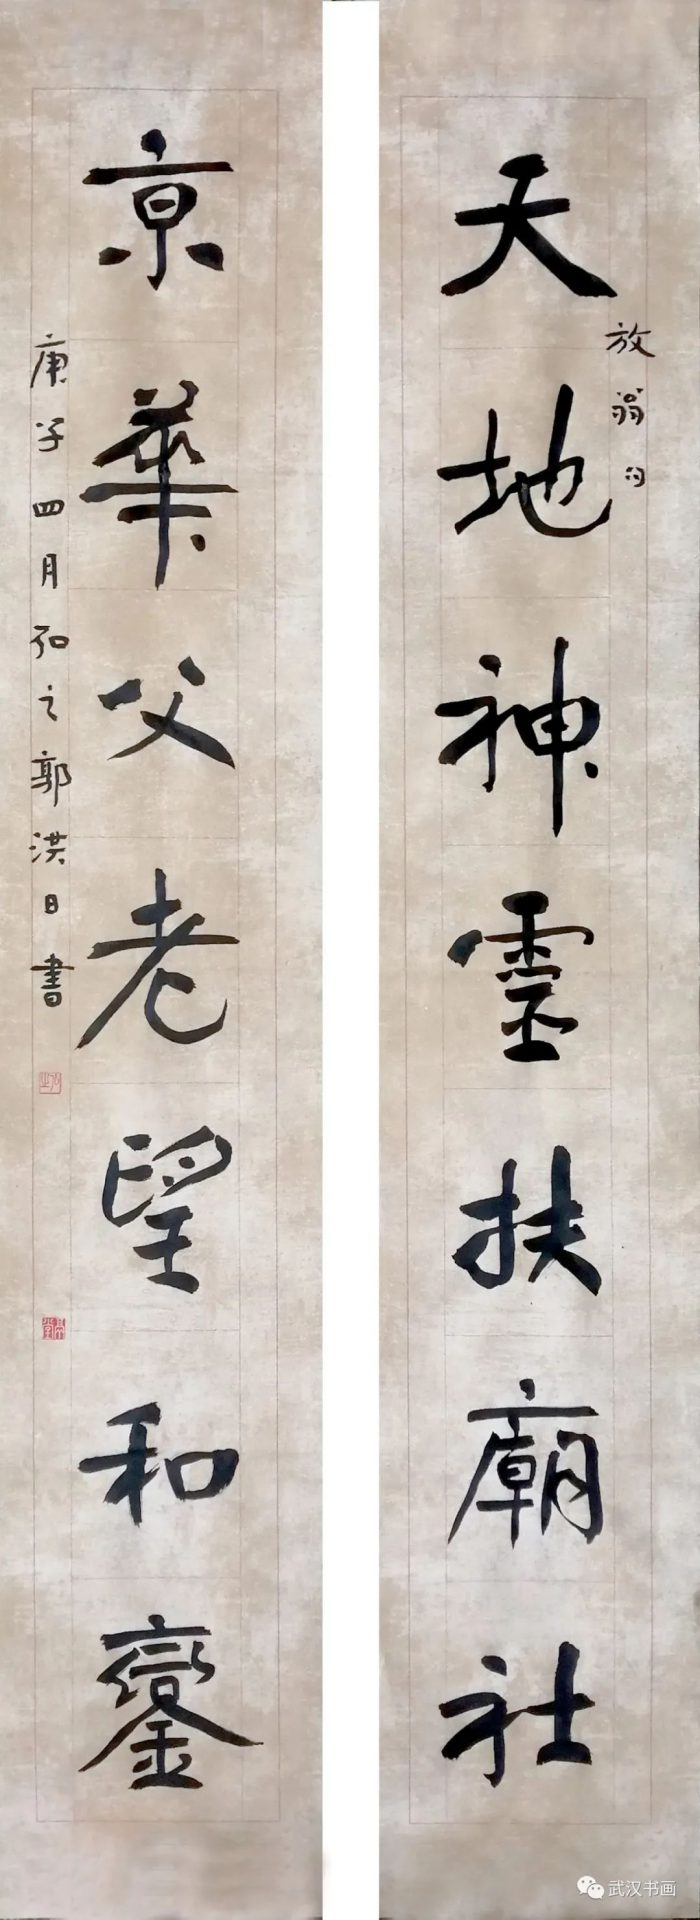 天地神靈扶廟社
放翁句
京華父老望和鑾
庚子四月弘之郭洪日書
武汉书画